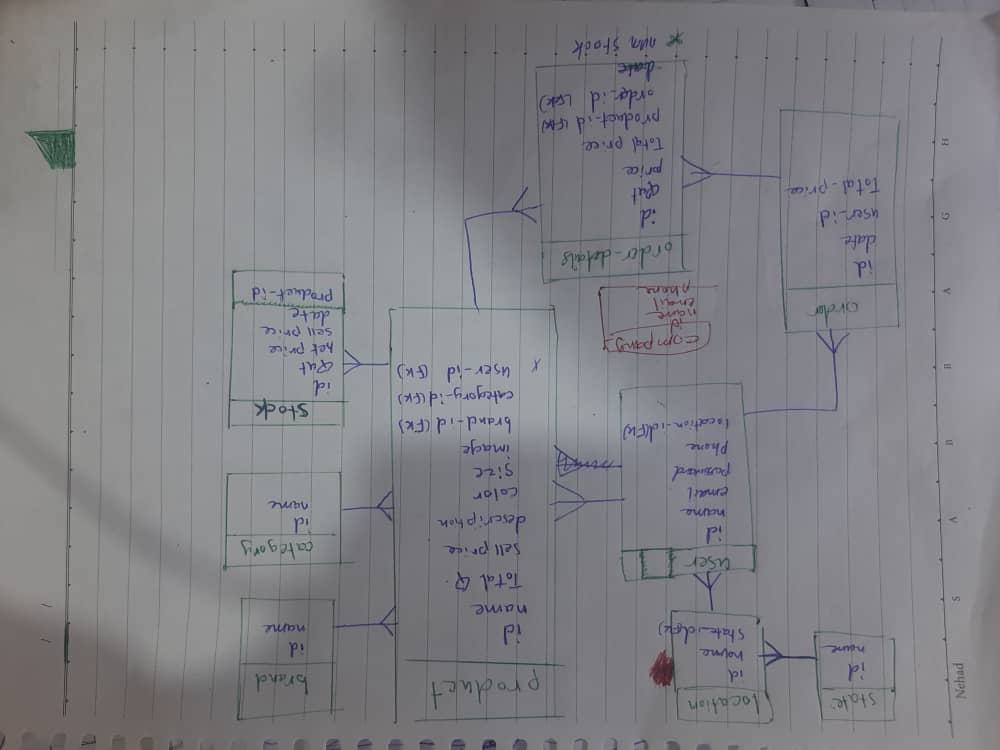 Nehad
S
A
B
B
A
G
H
state
id
name
location
id
name
state_id(FK)
user
id
name
email
password
Phone
location-id(FK)
product
id
name
Total Q.
sell price
description
color
size
image
brand-id (FK)
category-id (FK)
x user-id (FK)
brand
id
name
category
id
name
stock
id
Qut
net price
sell price
date
product-id
order
id
date
user-id
Total-price
company
id
name
email
phone
order-details
id
Qut
price
Total price
product-id (FK)
order-id (FK)
date
x num stock